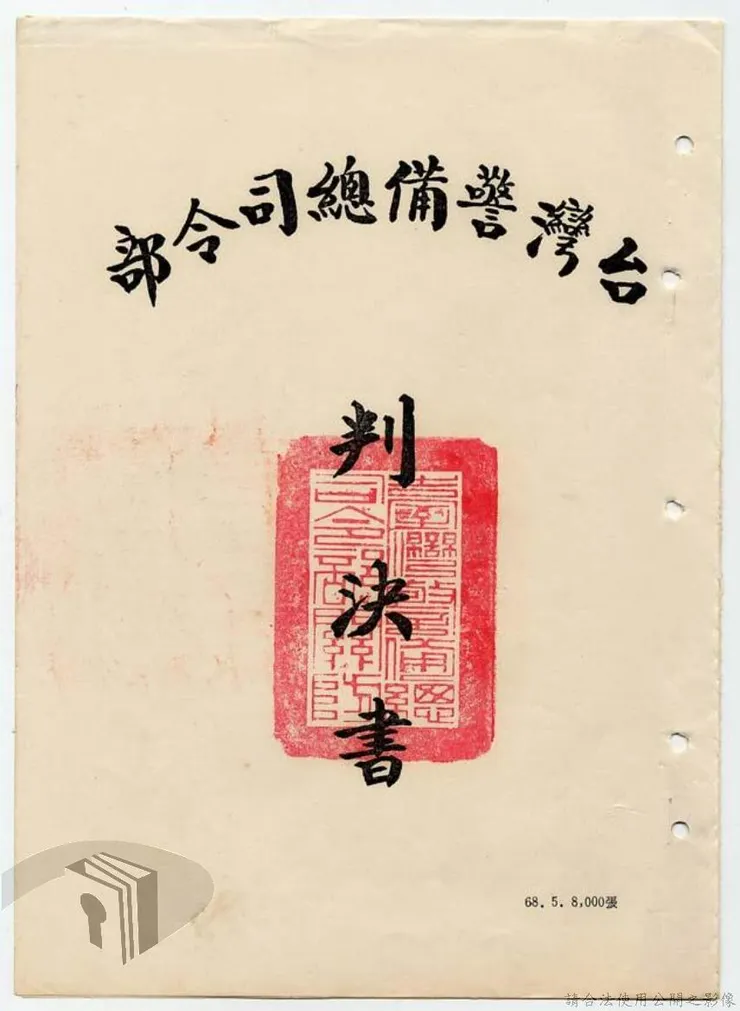 台灣警備總司令部
判決書
68. 5. 8,000張
請合法使用公開之影像